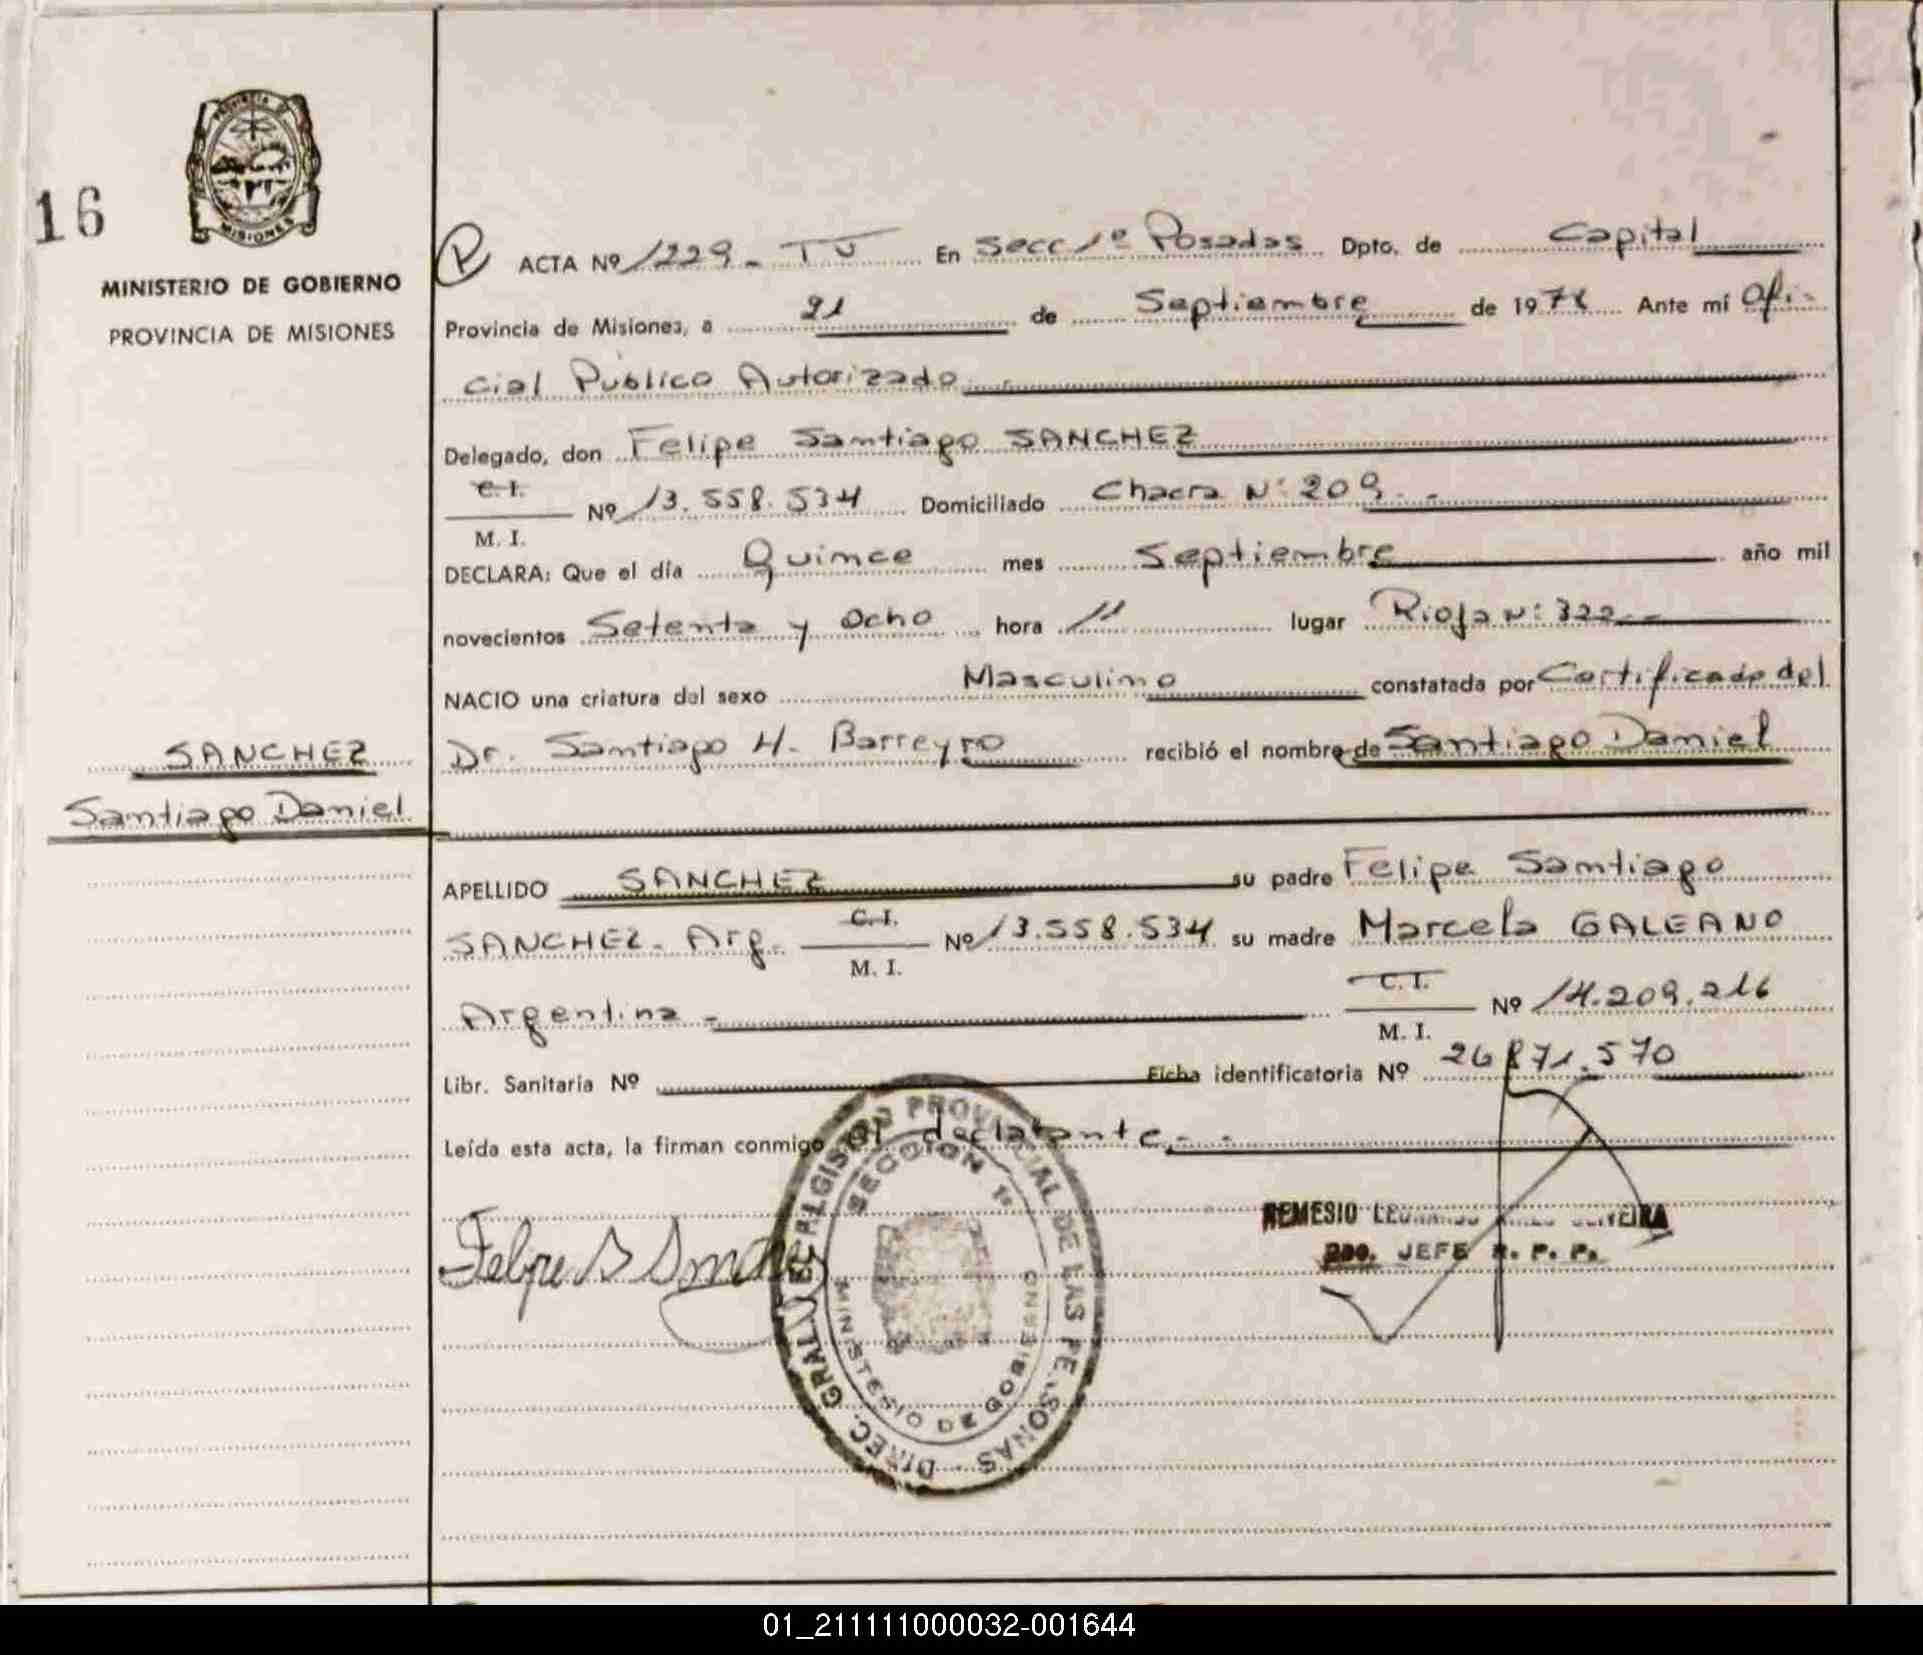 PROVINCIA DE
MISIONES
16
MINISTERIO DE GOBIERNO
PROVINCIA DE MISIONES
SANCHEZ
Santiago Daniel
P ACTA Nº 1229 - TU En Secc 1ª Posadas Dpto. de Capital
Provincia de Misiones, a 21 de Septiembre de 1978 Ante mí Ofi-
cial Público Autorizado
Delegado, don Felipe Santiago SANCHEZ
C. I.
M. I. Nº 13.558.534 Domiciliado Chacra Nº 209 -
DECLARA: Que el día Quince mes Septiembre año mil
novecientos Setenta y Ocho hora 11 lugar Rioja Nº 322 -
NACIO una criatura del sexo Masculino constatada por Certificado del
Dr. Santiago H. Barreyro recibió el nombre de Santiago Daniel
APELLIDO SANCHEZ su padre Felipe Santiago
SANCHEZ - Arg. C. I. M. I. Nº 13.558.534 su madre Marcela GALEANO
Argentina - C. I. M. I. Nº 14.209.216
Libr. Sanitaria Nº Ficha identificatoria Nº 26.871.570
Leída esta acta, la firman conmigo el declarante. -
Felipe S Sanchez
DIREC. GRAL. DEL REGISTRO PROVINCIAL DE LAS PERSONAS
SECCION 1ª
MINISTERIO DE GOBIERNO
REMESIO OLIVEIRA
JEFE R. P. P.
01_211111000032-001644